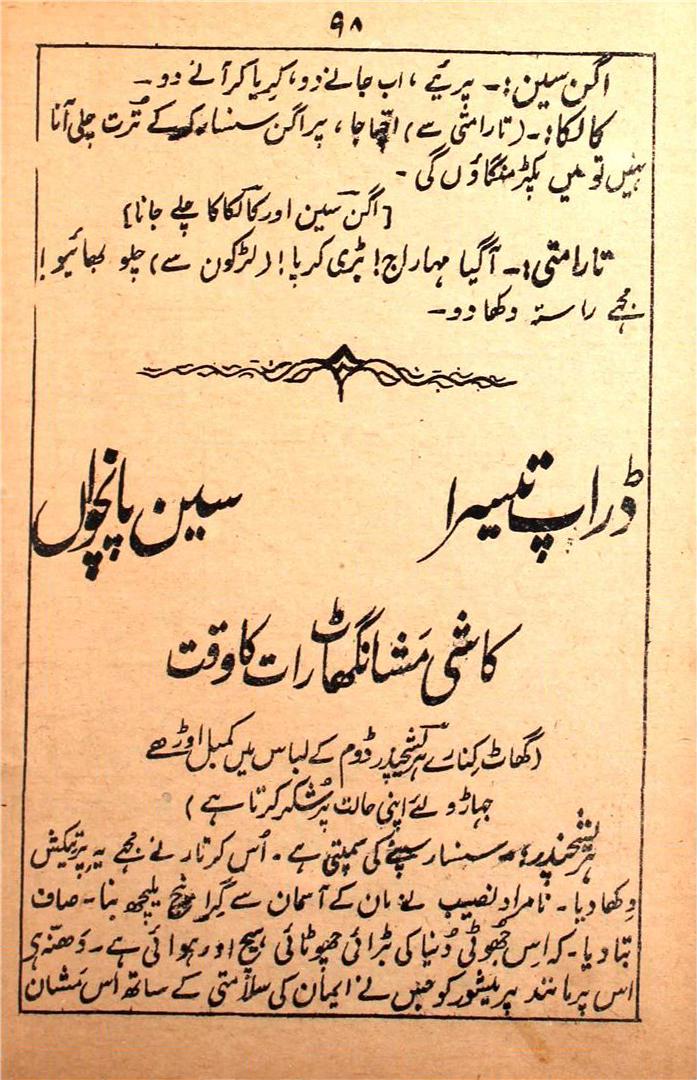 ۹۸
اگن سین :۔ پریئے ، اب جانے دو، کریا کر آنے دو۔
کالکا :۔ (تارامتی سے) اچھا جا ، پر اگن سنسار کر کے تُرت چلی آنا
نہیں تو میں پکڑ منگاؤں گی ۔
[اگن سین اور کالکا کا چلے جانا]
تارامتی :۔ آگیا مہاراج! بڑی کرپا! (لڑکون سے) چلو بھائیو!
مجھے راستہ دکھا دو۔
ڈراپ تیسرا سین پانچواں
کاشی مَشانگھاٹ رات کا وقت
(گھاٹ کِنارے ہرشچندر ڈوم کے لباس میں کمبل اوڑھے
جھاڑو لئے اپنی حالت پر شکر کرتا ہے)
ہرشچندر :۔ سنسار سپنے کی سمپتی ہے ۔ اُس کرتار نے مجھے یہ پرتیکش
دِکھا دیا ۔ نامراد نصیب نے مان کے آسمان سے گِرا نیچ ملیچھ بنا ۔ صاف
بتا دیا ۔ کہ اِس جُھوٹی دُنیا کی بڑائی چھوٹائی ہیچ اور ہوائی ہے ۔ دَھنّے ہی
اس پرمانند پرمیشور کو جس نے ایمان کی سلامتی کے ساتھ اس مَشان